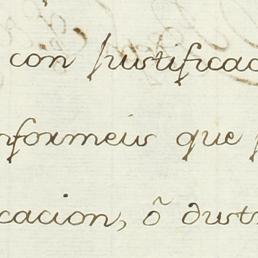 con justificac
nformeis que
cacion, ó dist